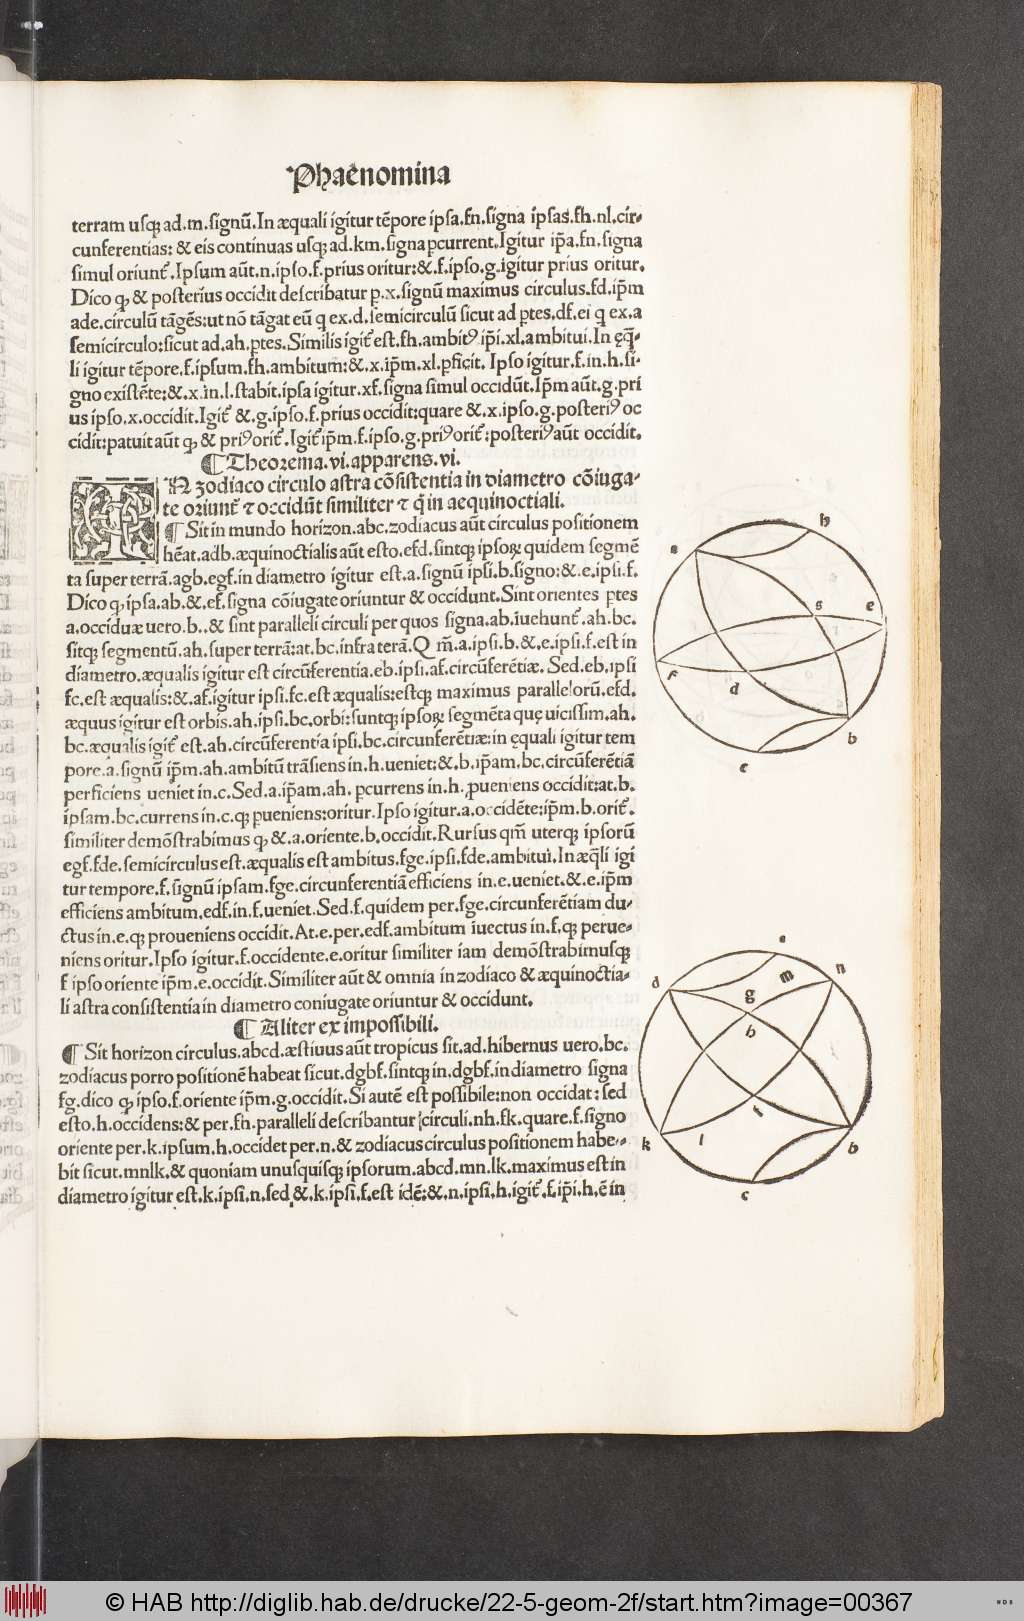 Phaenomina
terram usq; ad.m.signũ.In æquali igitur tẽpore ipsa.fn.signa ipsas.fh.nl.cir-
cunferentias: & eis continuas usq; ad.km.signa ꝑcurrent.Igitur ip̃a.fn.signa
simul oriunt̃.Ipsum aũt.n.ipso.f.prius oritur:&.f.ipso.g.igitur prius oritur.
Dico ꝙ & posterius occidit describatur p.x.signũ maximus circulus.fd.ip̃m
ade.circulũ tãgẽs:ut nõ tãgat eũ q ex.d.semicirculũ sicut ad ꝑtes.df.ei q ex.a
semicirculo:sicut ad.ah.ꝑtes.Similis igit̃ est.fh.ambitꝰ ip̃i.xl.ambitui.In ęq̃-
li igitur tẽpore.f.ipsum.fh.ambitum:&.x.ip̃m.xl.ꝑficit. Ipso igitur.f.in.h.si-
gno existẽte:&.x.in.l.stabit.ipsa igitur.xf.signa simul occidũt.Ip̃m aũt.g.pri
us ipso.x.occidit.Igit̃ &.g.ipso.f.prius occidit:quare &.x.ipso.g.posteriꝰ oc
cidit:patuit aũt ꝙ & priꝰorit̃.Igit̃ip̃m.f.ipso.g.priꝰorit̃:posteriꝰaũt occidit.
¶Theorema.vi.apparens.vi.
IN zodiaco circulo astra cõsistentia in diametro cõiuga-
te oriunt̃ ⁊ occidũt similiter ⁊ q̃ in aequinoctiali.
¶ Sit in mundo horizon.abc.zodiacus aũt circulus positionem
hẽat.adb.æquinoctialis aũt esto.efd.sintq; ipsoꝝ quidem segmẽ
ta super terrã.agb.egf.in diametro igitur est.a.signũ ipsi.b.signo:&.e.ipsi.f.
Dico ꝙ ipsa.ab.&.ef.signa cõiugate oriuntur & occidunt.Sint orientes ꝑtes
a.occiduæ uero.b..& sint paralleli circuli per quos signa.ab.iuehunt̃.ah.bc.
sitq; segmentũ.ah.super terrã:at.bc.infra terã.Q m̃.a.ipsi.b.&.e.ipsi.f.est in
diametro.æqualis igitur est circũferentia.eb.ipsi.af.circũferẽtiæ. Sed.eb.ipsi
fc.est æqualis:&.af.igitur ipsi.fc.est æqualis:estq; maximus parallelorũ.efd.
æquus igitur est orbis.ah.ipsi.bc.orbi:suntq; ipsoꝝ segmẽta quę uicissim.ah.
bc.æqualis igit̃ est.ah.circũferentia ipsi.bc.circunferẽtiæ:in ęquali igitur tem
pore.a.signũ ip̃m.ah.ambitũ trãsiens in.h.ueniet:&.b.ip̃am.bc.circũferẽtiã
perficiens ueniet in.c.Sed.a.ip̃am.ah. ꝑcurrens in.h. ꝓueniens occidit:at.b.
ipsam.bc.currens in.c.q; ꝓueniens:oritur.Ipso igitur.a.occidẽte:ip̃m.b.orit̃.
similiter demõstrabimus ꝙ &.a.oriente.b.occidit.Rursus qm̃ uterq; ipsorũ
egf.fde.semicirculus est.æqualis est ambitus.fge.ipsi.fde.ambitui.In æq̃li igi
tur tempore.f.signũ ipsam.fge.circunferentiã efficiens in.e.ueniet.&.e.ip̃m
efficiens ambitum.edf.in.f.ueniet.Sed.f.quidem per.fge.circunferẽtiam du-
ctus in.e.q; proueniens occidit.At.e.per.edf.ambitum iuectus in.f.q; perue-
niens oritur.Ipso igitur.f.occidente.e.oritur similiter iam demõstrabimusq;
f ipso oriente ip̃m.e.occidit.Similiter aũt & omnia in zodiaco & æquinoctia-
li astra consistentia in diametro coniugate oriuntur & occidunt.
¶ Aliter ex impossibili.
¶ Sit horizon circulus.abcd.æstiuus aũt tropicus sit.ad.hibernus uero.bc.
zodiacus porro positionẽ habeat sicut.dgbf.sintq; in.dgbf.in diametro signa
fg.dico ꝙ ipso.f.oriente ip̃m.g.occidit.Si autẽ est possibile:non occidat: sed
esto.h.occidens:& per.fh.paralleli describantur circuli.nh.fk.quare.f.signo
oriente per.k.ipsum.h.occidet per.n.& zodiacus circulus positionem habe-
bit sicut.mnlk.& quoniam unusquisq; ipsorum.abcd.mn.lk.maximus est in
diametro igitur est.k.ipsi.n.sed &.k.ipsi.f.est idẽ:&.n.ipsi.h.igit̃.f.ip̃i.h.ẽ in
h
a
s
e
f
d
b
c
a
d
m
n
g
h
f
k
l
b
c
© HAB http://diglib.hab.de/drucke/22-5-geom-2f/start.htm?image=00367